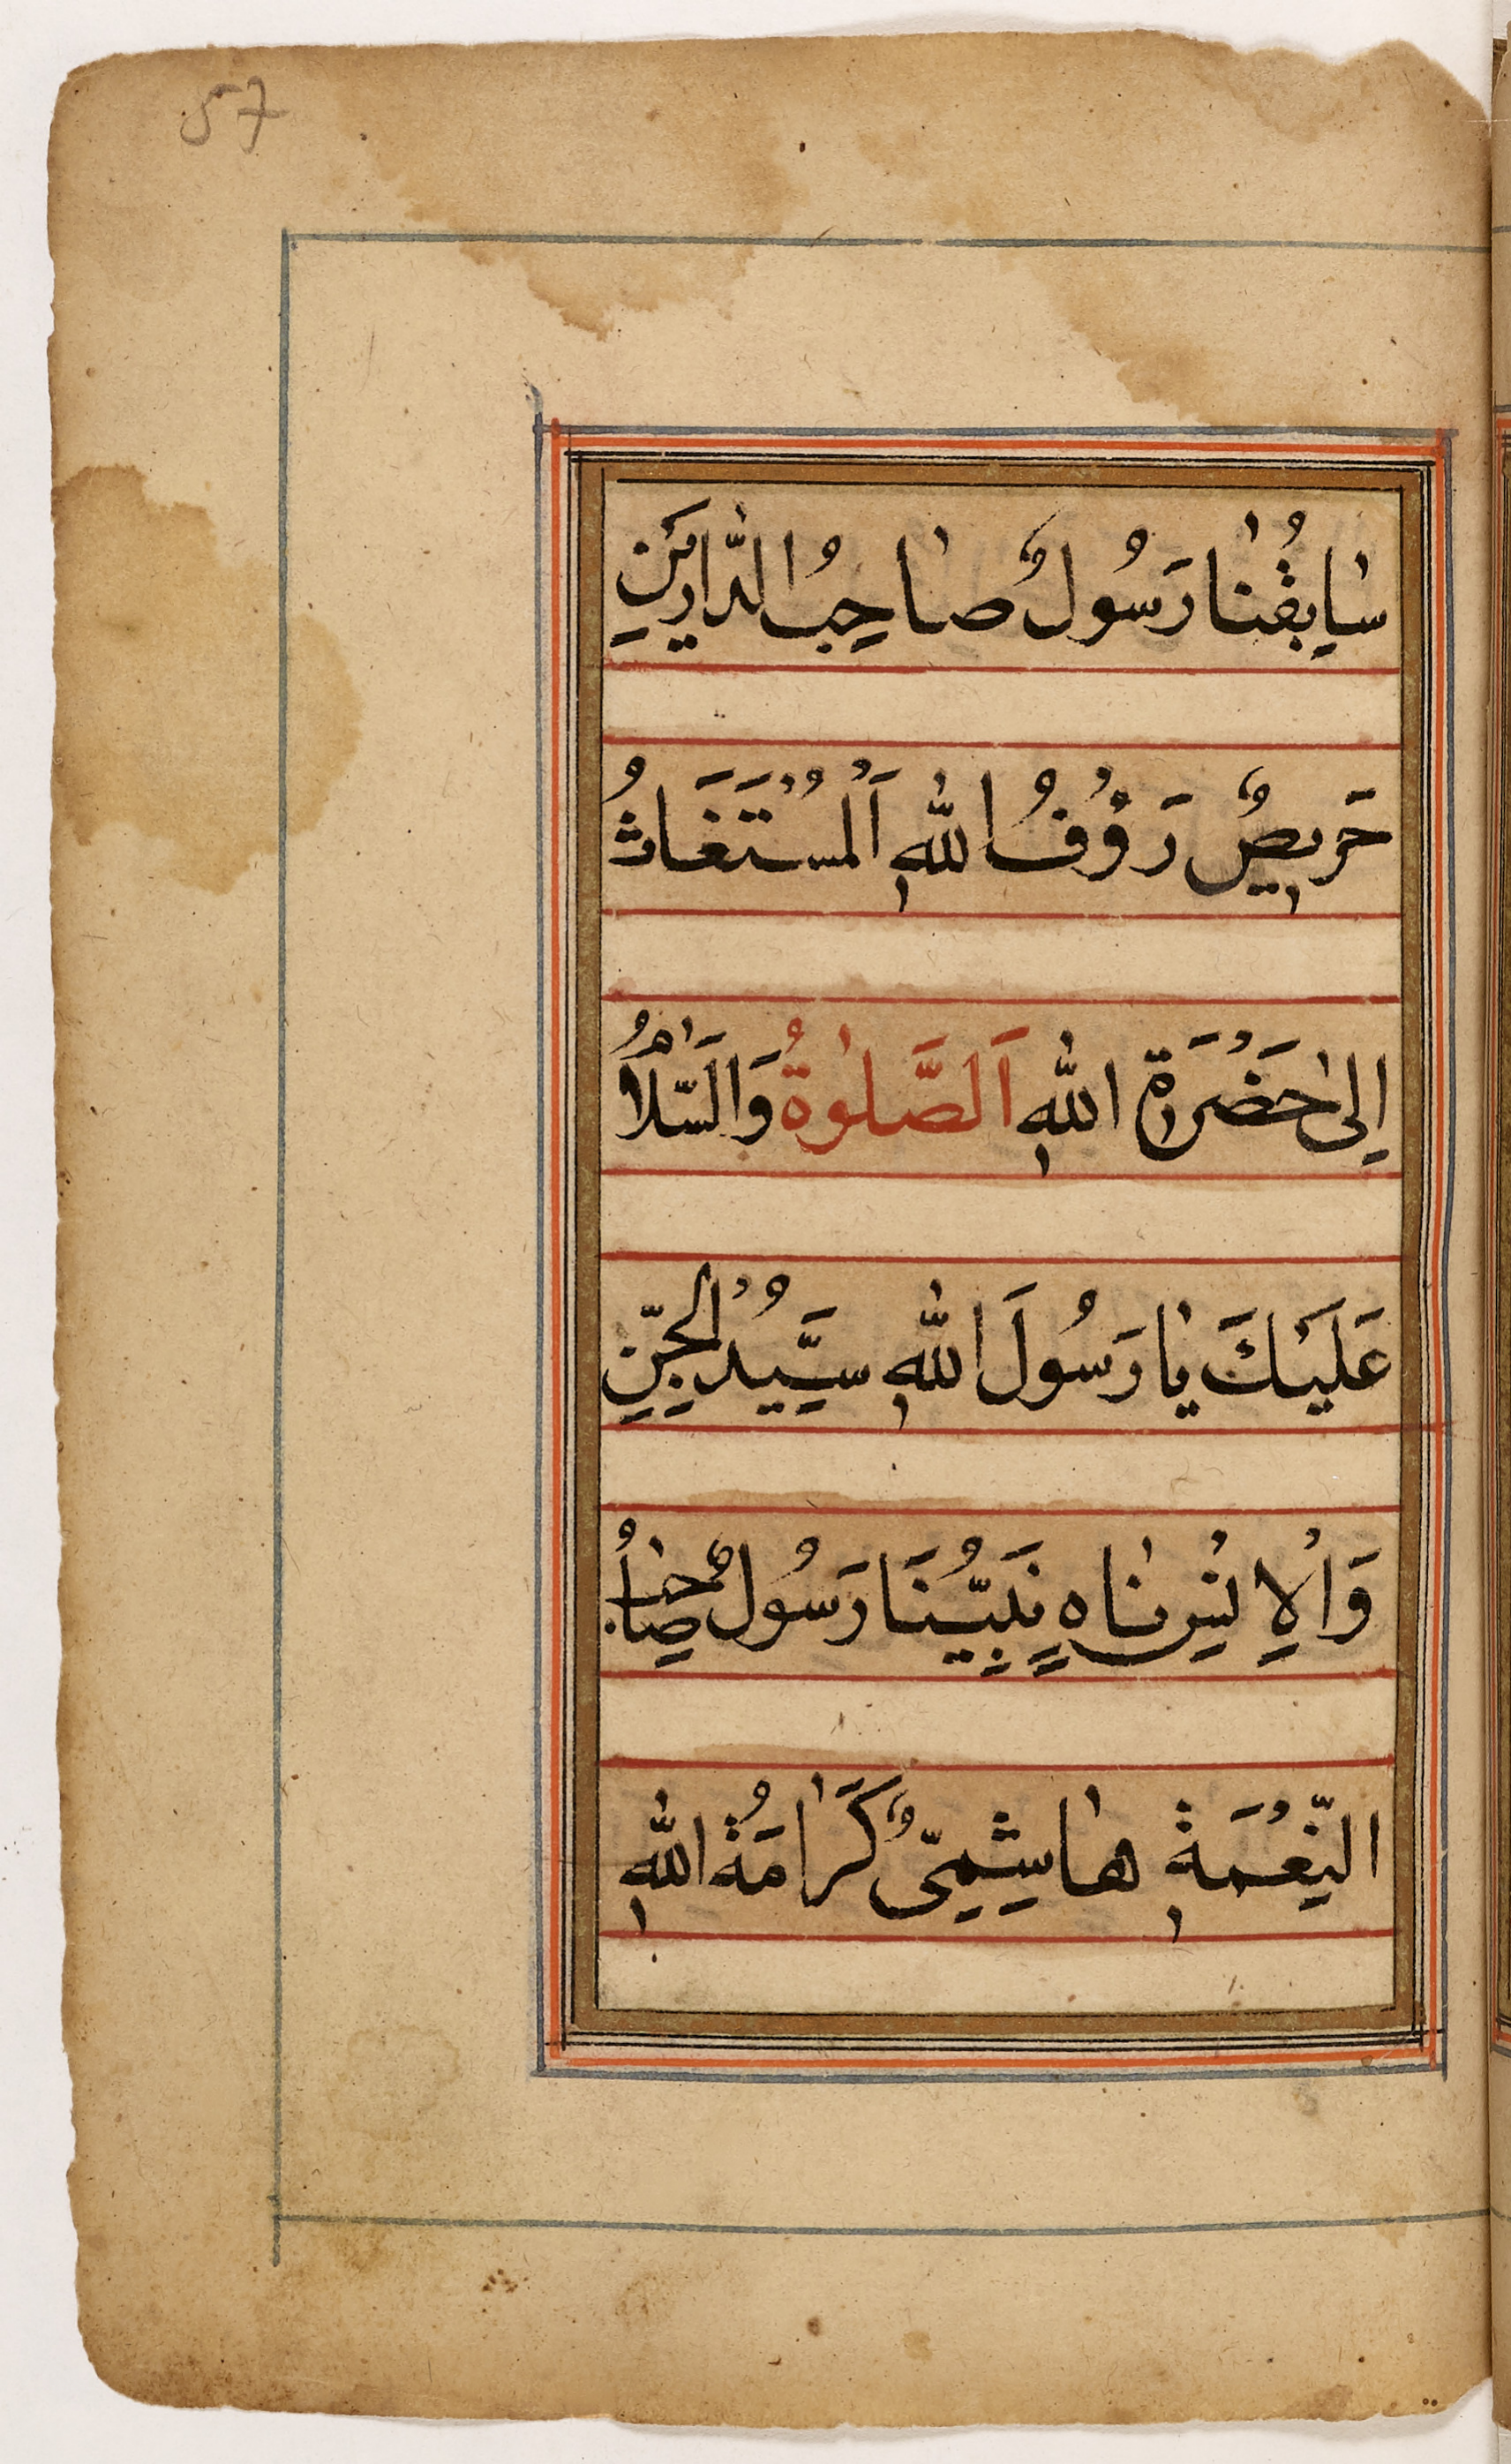 57
سٰابِقُنٰا رَسُولٌ صٰاحِبُ الدّٰارَيْنِ
حَرِيصٌ رَؤُفُ اللّٰهِ اَلْمُسْتَغَاثُ
اِلىٰ حَضْرَةِ اللّٰهِ اَلصَّلٰوةُ وَالسَّلٰامُ
عَلَيْكَ يٰا رَسُولَ اللّٰهِ سَيِّدُ الْجِنِّ
وَالْاِنْسِ نٰاهٍ نَبِيُّنَا رَسُولٌ صٰاحِبُ
النِّعْمَةِ هٰاشِمِىٌّ كَرٰامَةُ اللّٰهِ